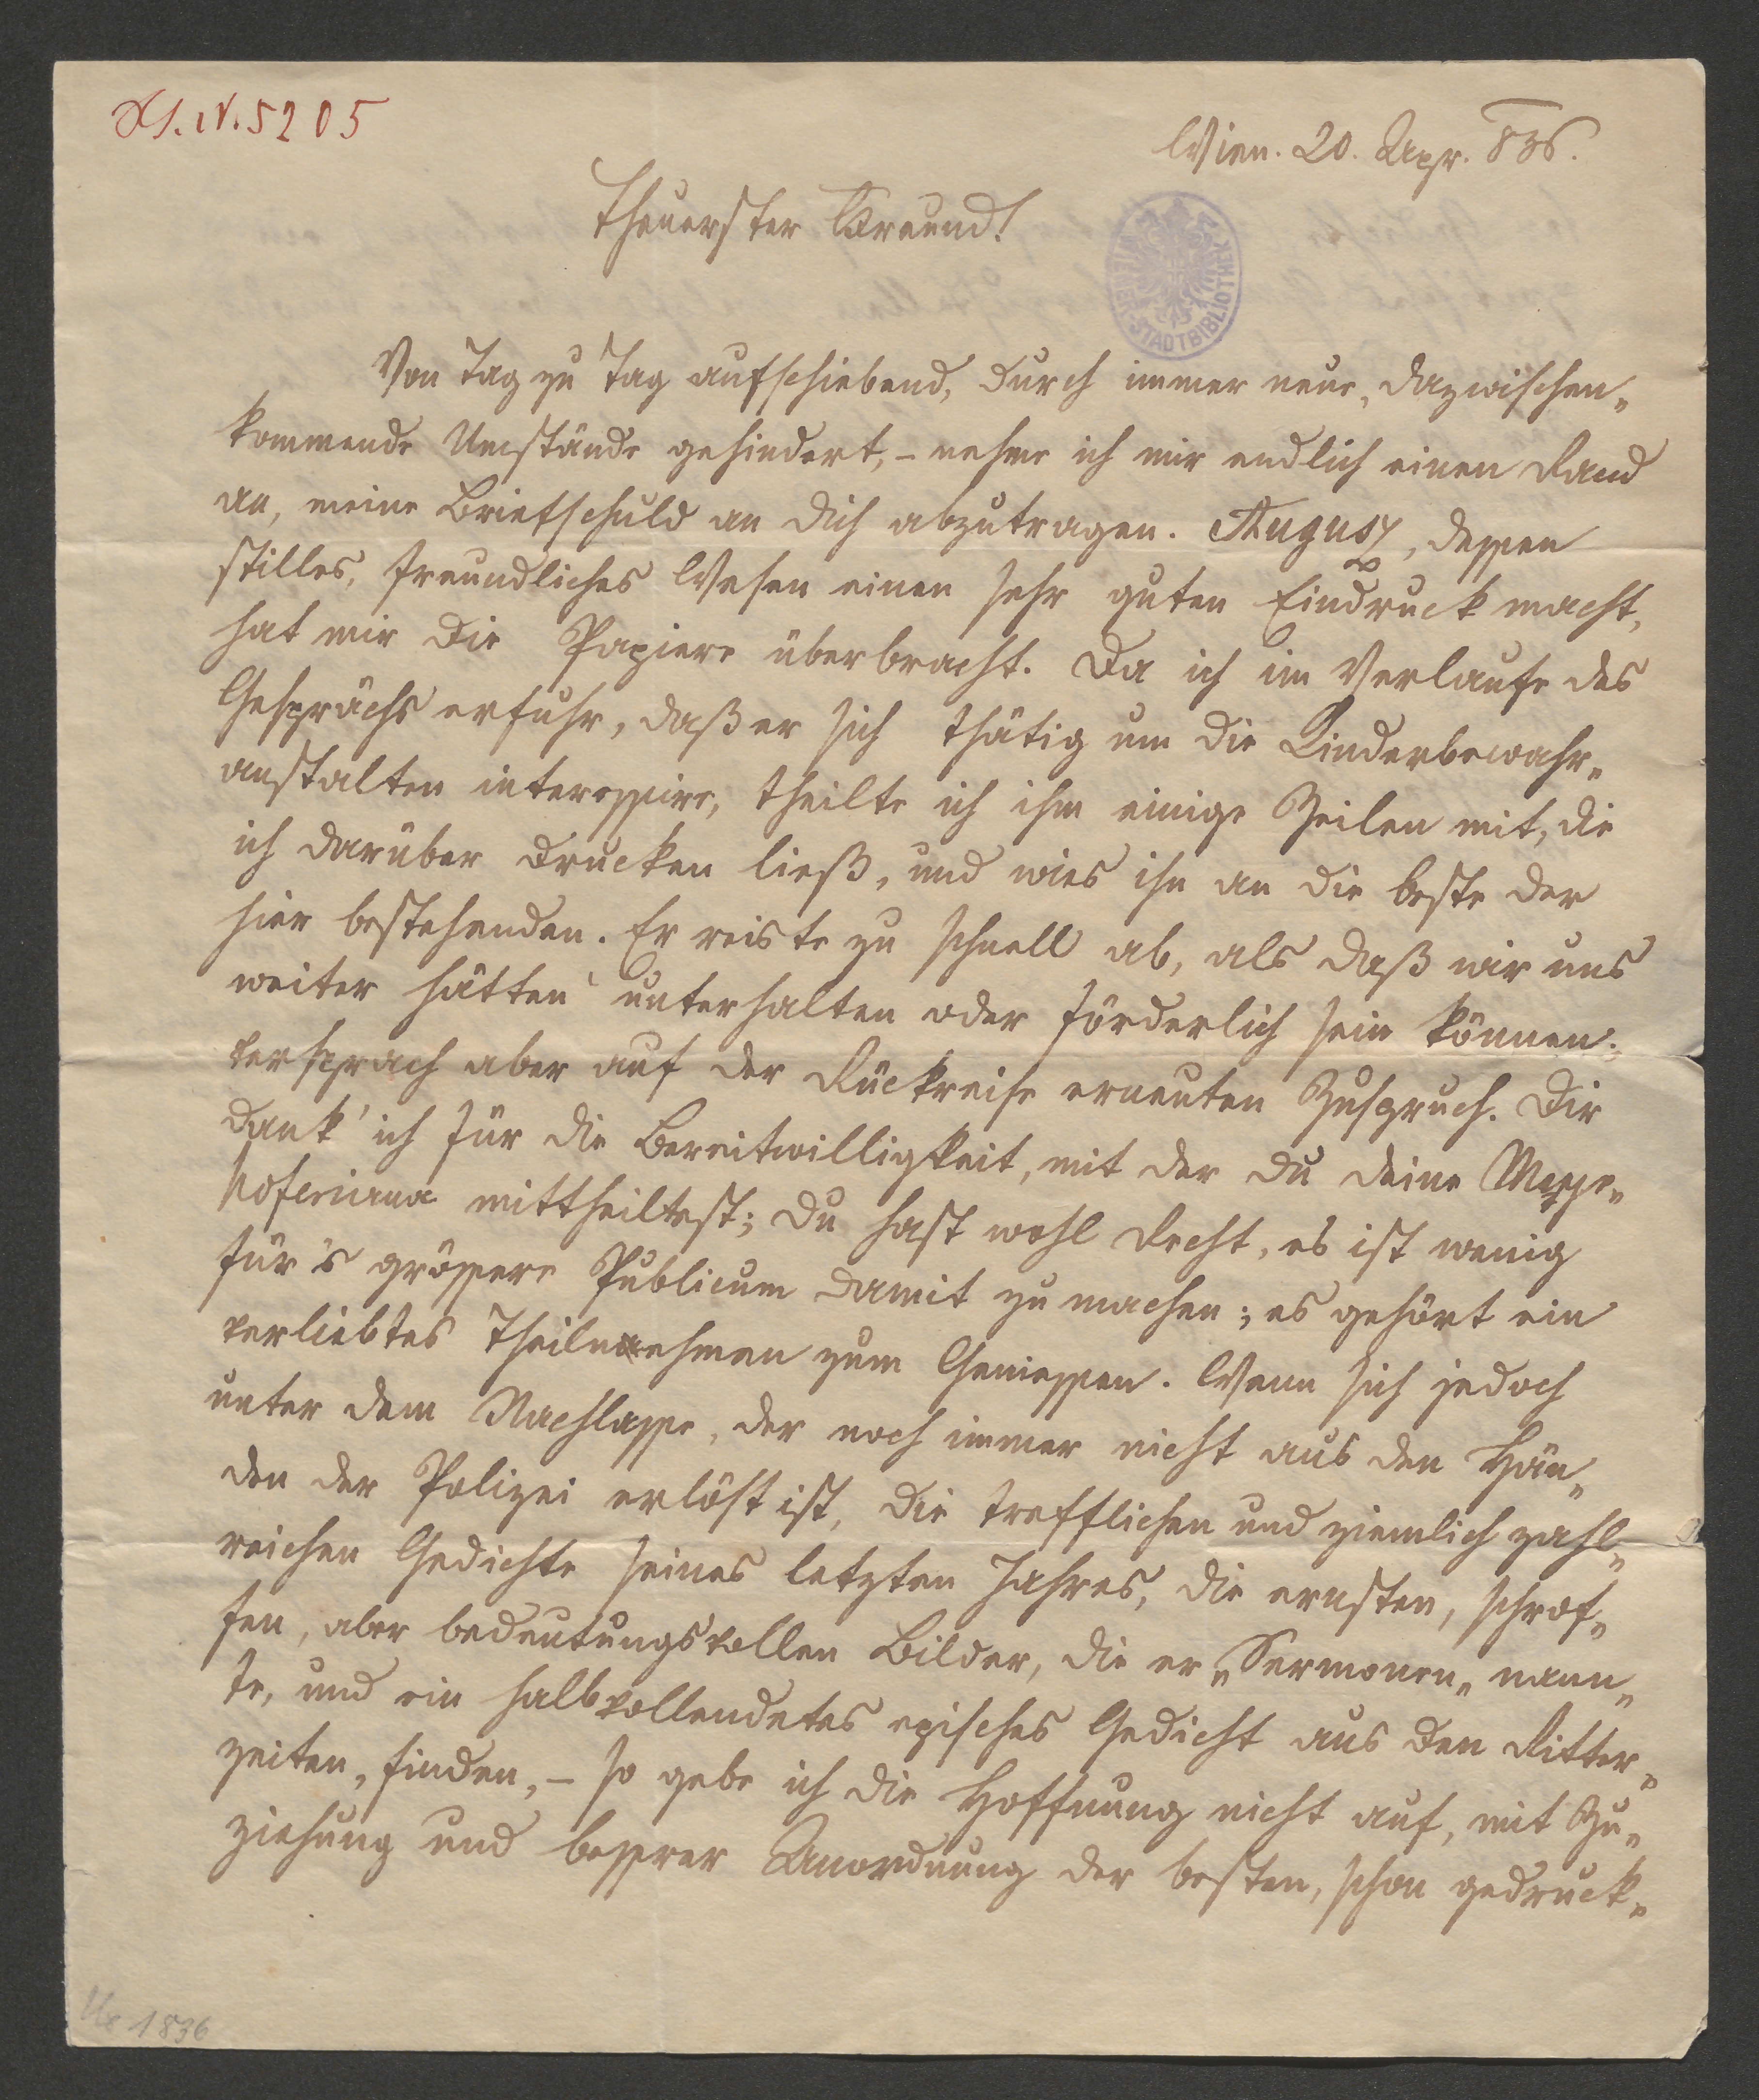 H.I.N. 5205
Wien. 20. Apr. 836.
Theuerster Freund!
WIENER STADTBIBLIOTHEK
Von Tag zu Tag aufschiebend, durch immer neue, dazwischen„
kommende Umstände gehindert, – nehme ich mir endlich einen Rand
an, meine Briefschuld an dich abzutragen. August, dessen
stilles, freundliches Wesen einen sehr guten Eindruck macht,
hat mir die Papiere überbracht. Da ich im Verlaufe des
Gesprächs erfuhr, daß er sich thätig um die Kinderbewahr„
anstalten interessire, theilte ich ihm einige Zeilen mit, die
ich darüber drucken ließ, und wies ihn an die beste der
hier bestehenden. Er reiste zu schnell ab, als daß wir uns
weiter hätten unterhalten oder förderlich sein können;
versprach aber auf der Rückreise erneuten Zuspruch. Dir
dank' ich für die Bereitwilligkeit, mit der du deine
mittheiltest; du hast wohl Recht, es ist wenig
für's grössere Publicum damit zu machen; es gehört ein
verliebtes Theilnehmen zum Geniessen. Wenn sich jedoch
unter dem Nachlasse, der noch immer nicht aus den Hän„
den der Polizei erlöst ist, die trefflichen und ziemlich zahl„
reichen Gedichte seines letzten Jahres, die ernsten, schrof„
fen, aber bedeutungsvollen Bilder, die er „Sermonen„ nann„
te, und ein halbvollendetes episches Gedicht aus den Ritter„
zeiten, finden, – so gebe ich die Hoffnung nicht auf, mit Zu„
ziehung und bessrer Anordnung der besten, schon gedruck„
1836